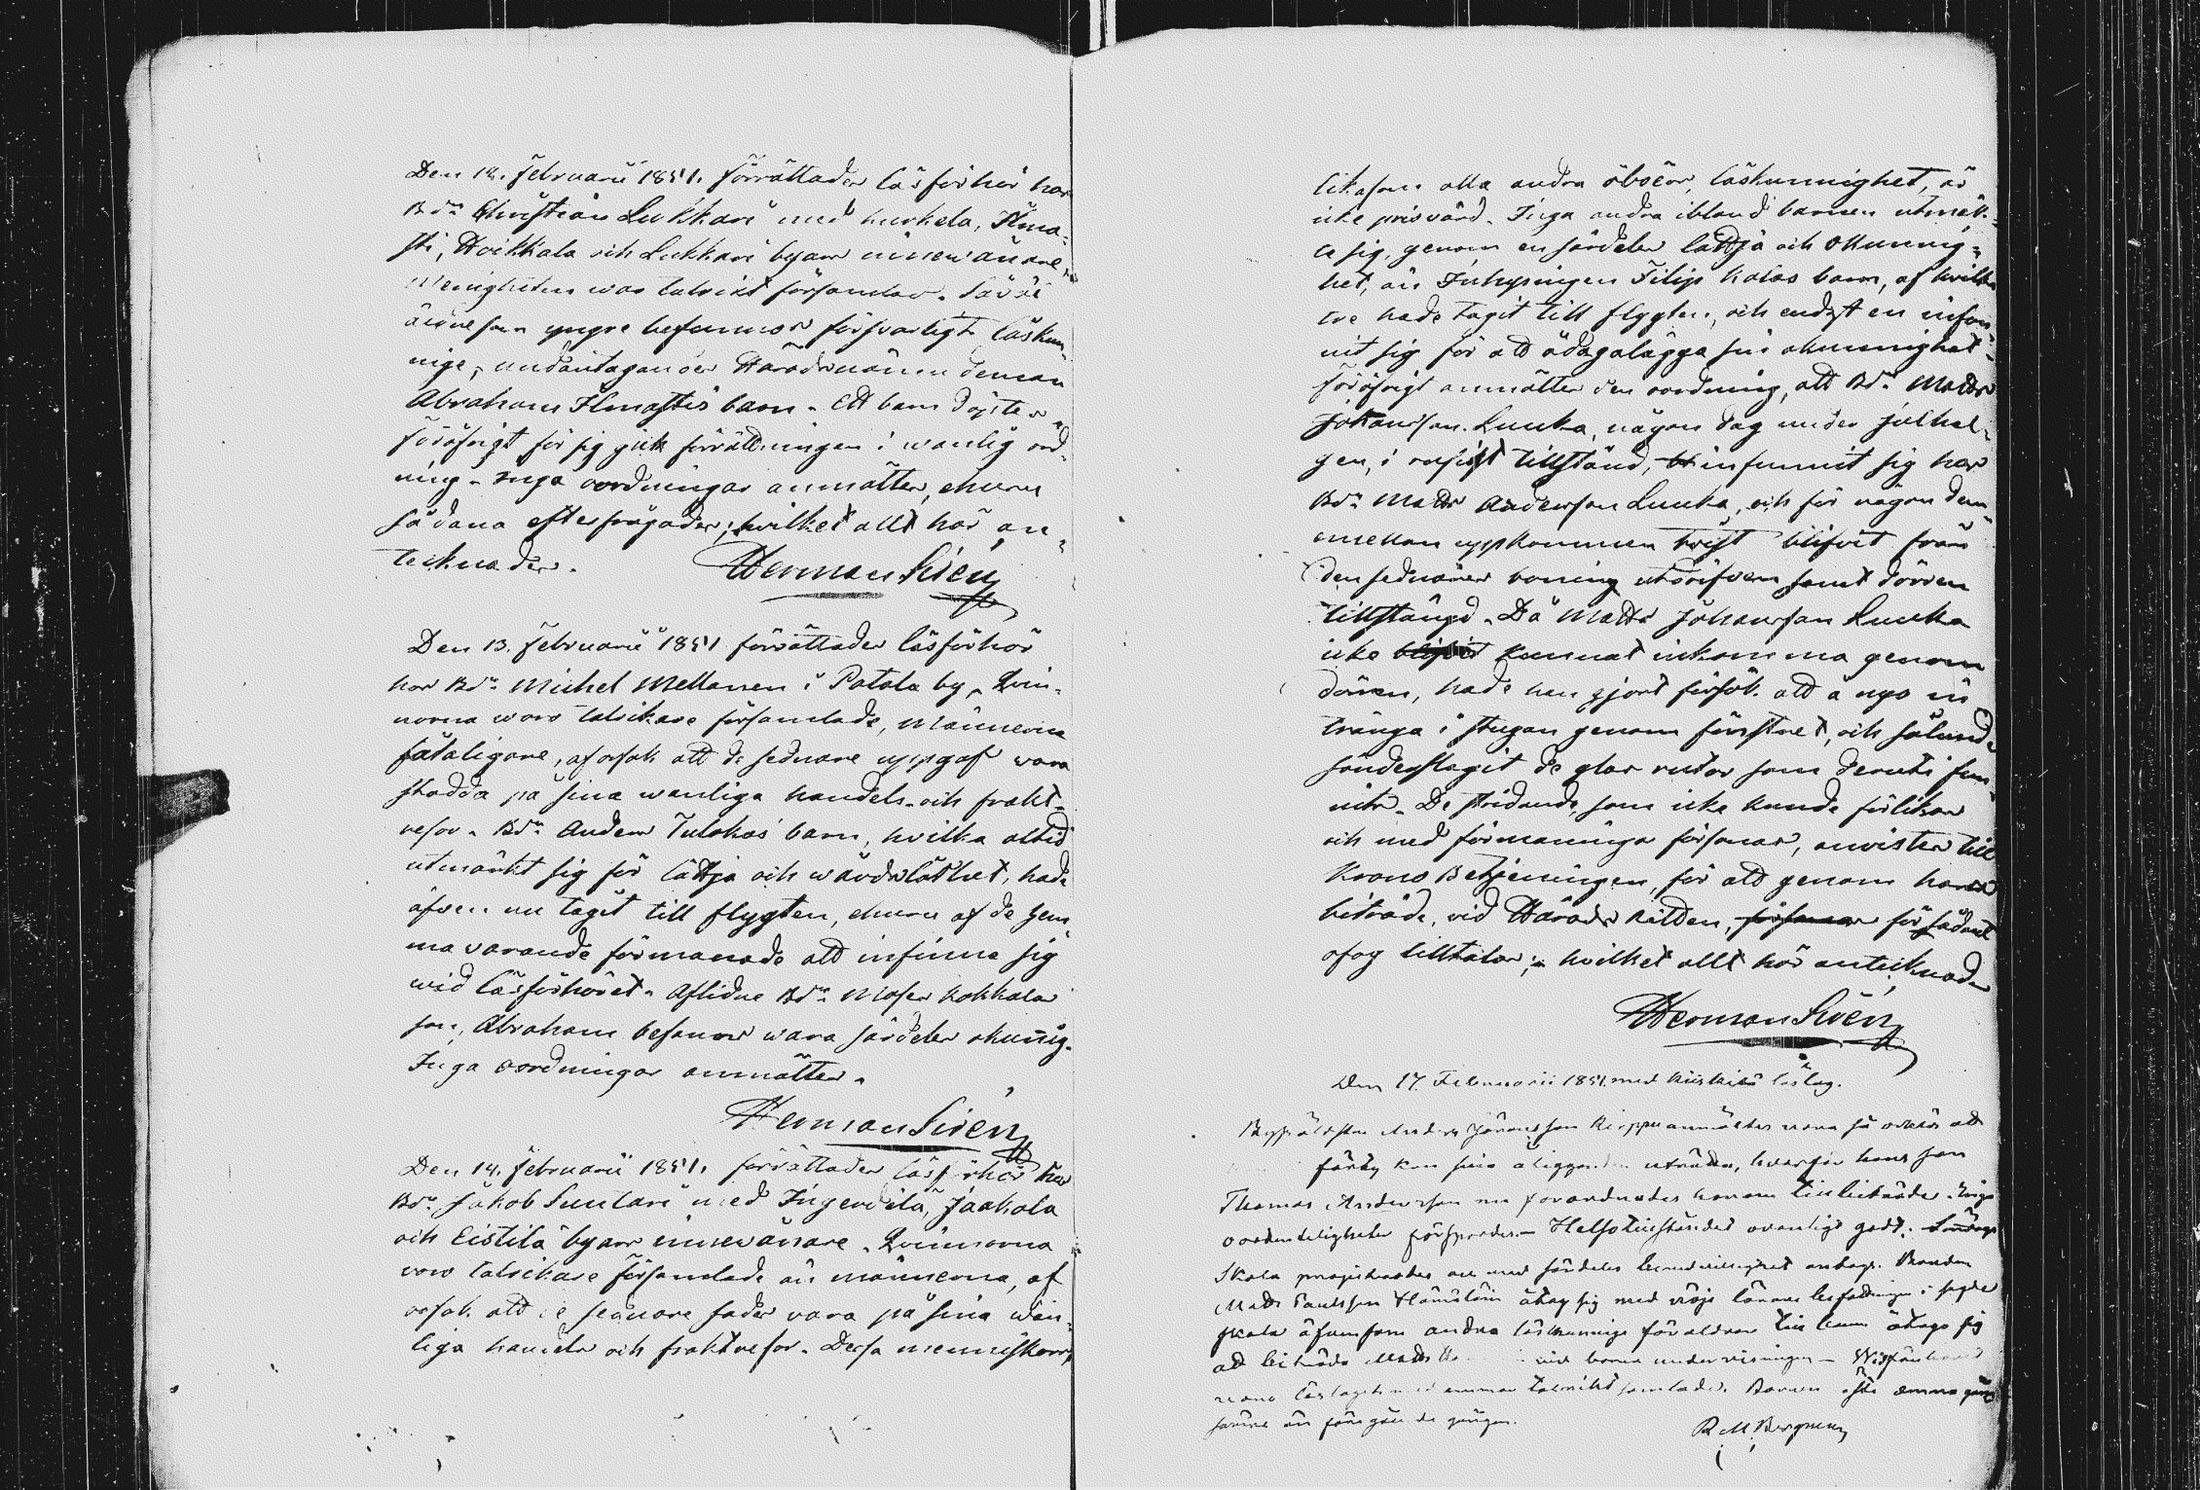 Den 12. Februarii 1851. förrättades läsförhör hos
Bdn Christian Lukkari med Kurkela, Ilma-
sti, Hoikkala och Lukkari byars innewånare,
Menigheten war talrikt församlad. Såväl
äldre som yngre befunnos försvarligt läskun-
nige, undantagandes Häradsnämndeman
Abraham Ilmastis barn. Ett barn döptes
föröfrigt för sig gick förrättningen i wanlig ord-
ning. Inga oordningar anmältes, ehuru
sådana efterfrågades; hvilket allt här an-
tecknades. Herman Sirén
Den 13. Februarii 1851 förrättades läsförhör
hos Bdn Michel Mellanen i Patala by. Qvin-
norna woro talrikare församlade, männerna
fåtaligare, af orsak att de sednare uppgafs wara
stadda på sina wanliga handels- och frakt-
resor. Bdn Anders Tulokas barn, hvilka alltid
utmärkt sig för lättja och wårdslöshet, hade
äfven nu tagit till flygten, ehuru af de hem-
mavarande förmanade att infinna sig
wid läsförhöret. Aflidne Bdn Moses Kokkalas
son, Abraham befanns wara särdeles okunnig.
Inga oordningar anmältes.
Herman Sirén
Den 14. Februarii 1851. förrättades läsförhör hos
Bdn Jakob Suutari med Ingerdilä, Jaakola
och Eistilä byars innewånare. Qvinnorna
voro talrikare församlade än männerna, af
orsak att de sednare sades vara på sina wan-
liga handels och fraktresor. Dessa menniskors,
likasom alla andra öboers, läskunnighet, är
icke prisvärd. Inga andra ibland barnen utmärk-
te sig, genom en särdeles lättja och okunnig-
het, än Inhysingen Filip Kalas barn, af hvilka
tre hade tagit till flygten, och endast en infun-
nit sig för att ådagalägga sin okunnighet
föröfrigt anmältes den oordning, att Bdn Matts
Johansson Luuka, någon dag under julhel-
gen, i rusigt tillstånd, infunnit sig hos
Bdn Matts Andersson Luuka, och för någon dem
emellan uppkommen tvist blifvit från
den sednares boning utdrifven samt dörren
tillstängd. Då Matts Johansson Luuka
icke blifvit kunnat inkomma genom
dörren, hade han gjort försök att å nyo in
tränga i stugan genom fönstret, och sålunde
sönderslagit de glas rutor som deruti fun-
nits. De stridande, som icke kunde förlikas
och med förmaningar försonas, anvistes till
Krono Betjeningen, för att genom hans
biträde, vid Härads Rätten, försonas för sådant
ofog tilltalas; hvilket allt här antecknades
Herman Sirén
Den 17. Februarii 1851. med Kiiskilä läslag.
Byggålderste Anders Jöransson anmältes vara så att
han sina åligganden uträtta, hvarför hans son
Thomas Andersson nu förordnades honom till biträde. Inga
oordentligheter förspordes. Helsotillståndet ovanligt godt. Söndags
Skola projecterades och med särdeles beredvillighet antogs. Bonden
Matts Paulsson åtog sig med nöje lärare befattningen i sagde
skola äfvensom andra läskunnige föräldrar åtogo sig
att biträda Matts vid barna undervisningen
läslaget talrikt samlade. Barnen denna gång
sämre än föregående gången.
R M Bergman